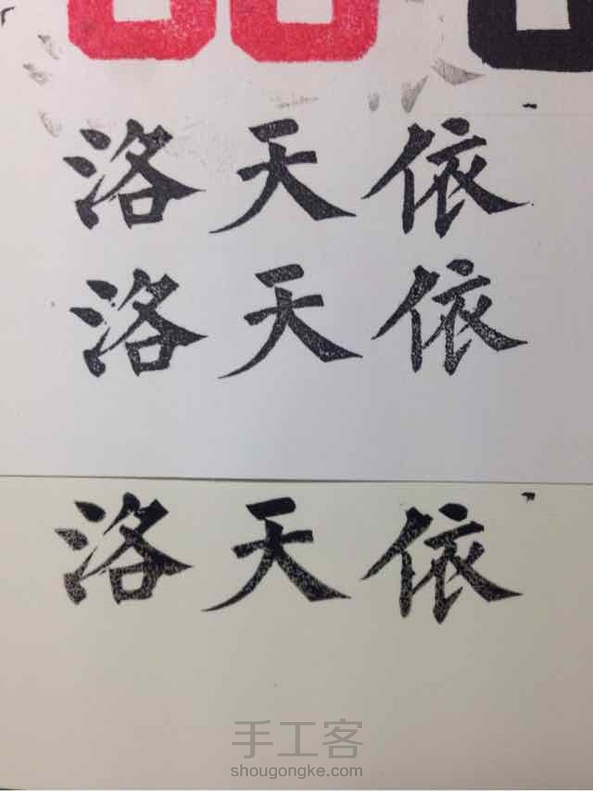 洛天依
洛天依
洛天依
手工客
shougongke.com